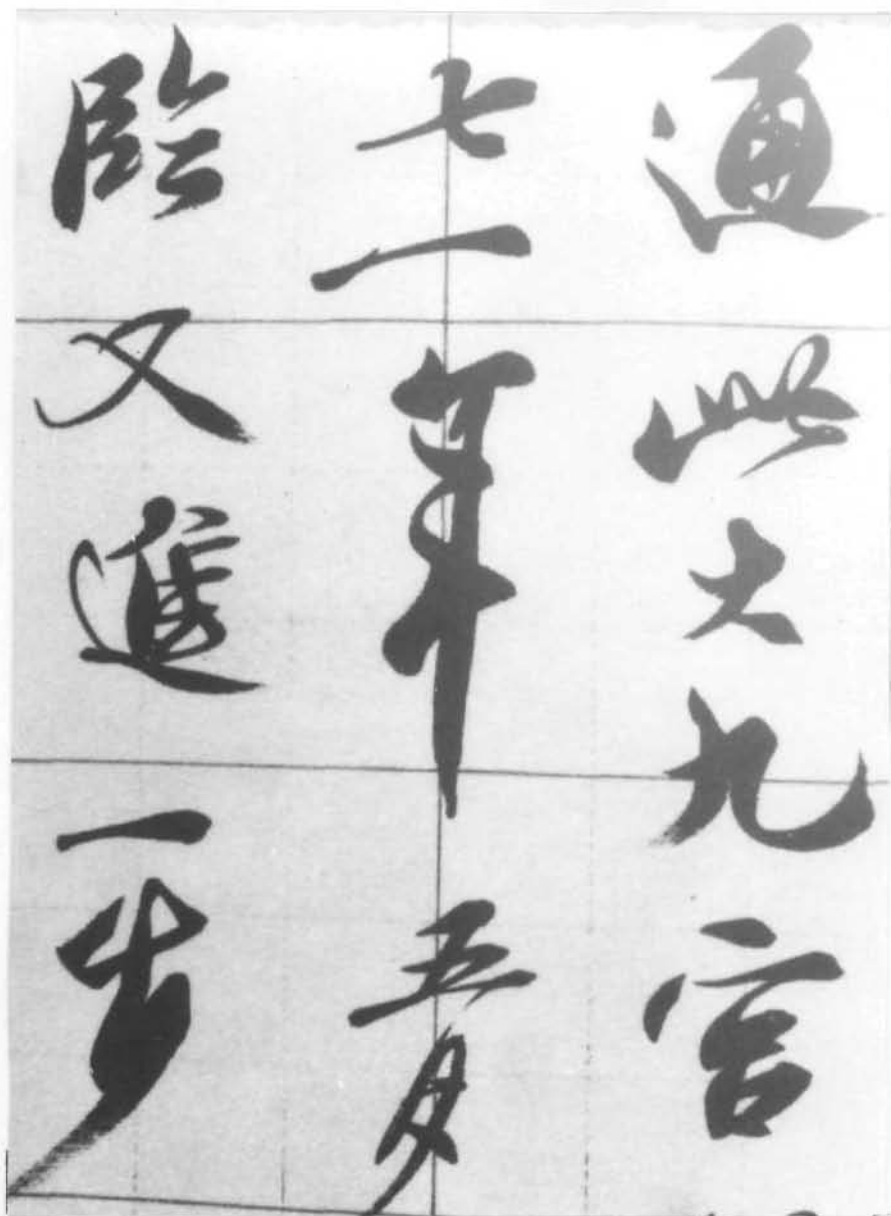 通此大九宫
七一年五月
臨又進一步